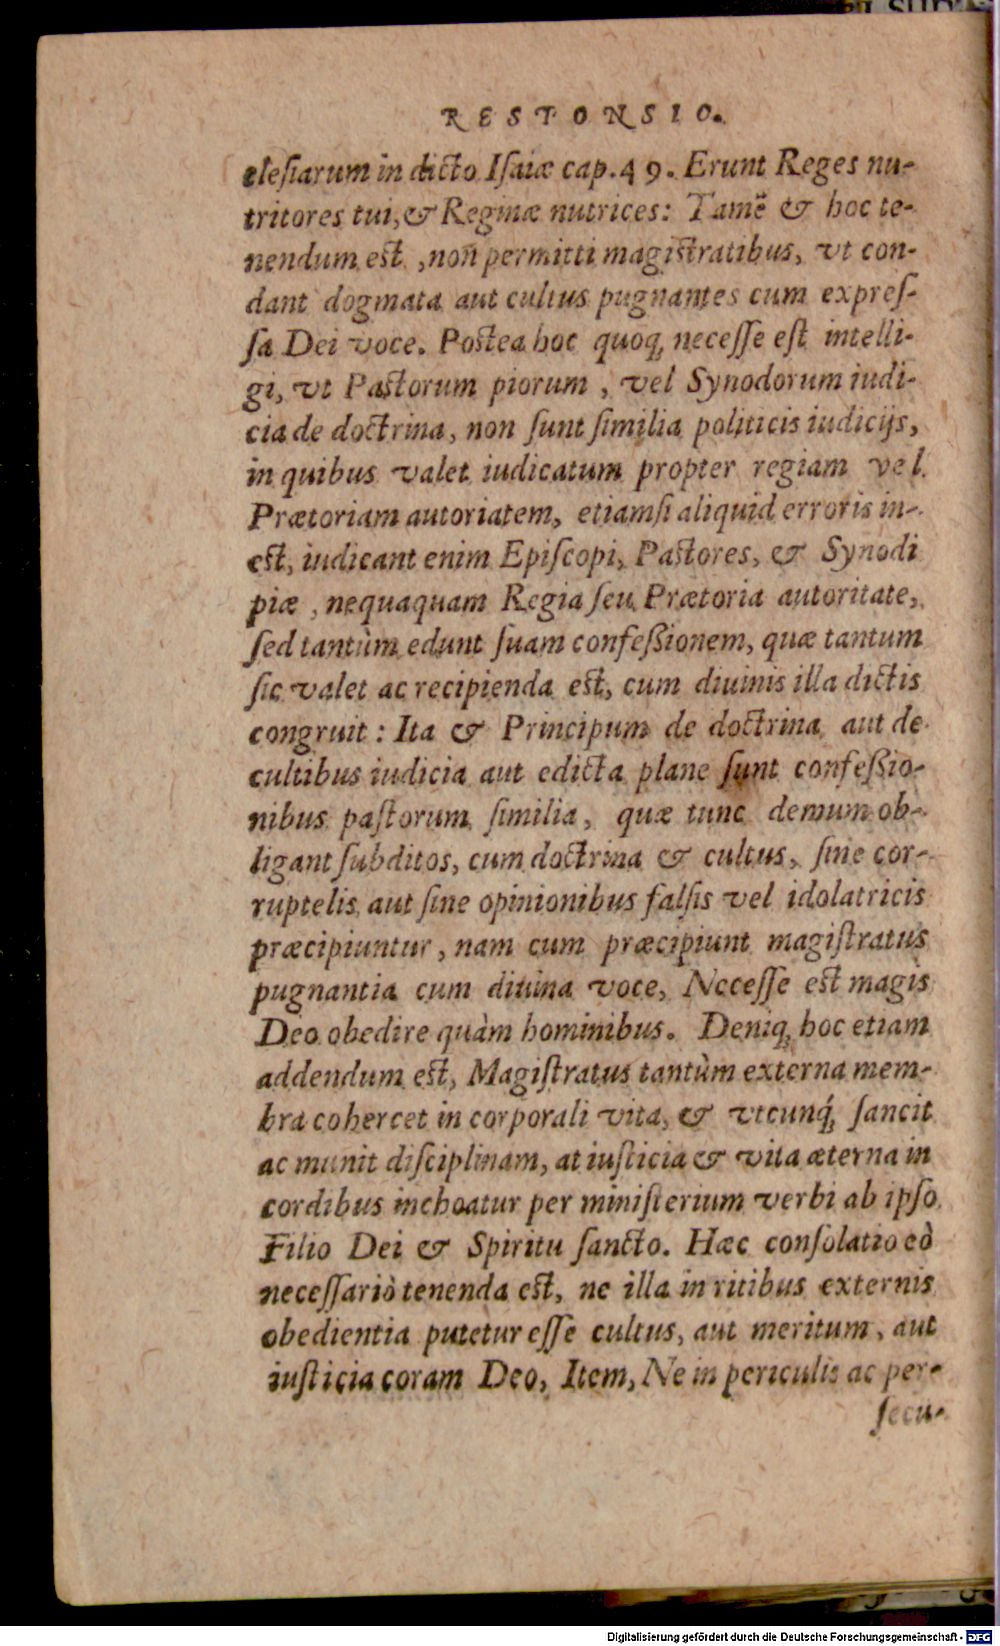 RESPONSIO.
clesiarum in dicto Iſaiæ cap. 49. Erunt Reges nu-
tritores tui, & Reginæ nutrices: Tamē & hoc te-
nendum est, non permitti magistratibus, vt con-
dant dogmata aut cultus pugnantes cum expreſ-
ſa Dei voce. Postea hoc quoq; neceſſe eſt intelli-
gi, vt Pastorum piorum, vel Synodorum iudi-
cia de doctrina, non ſunt ſimilia politicis iudicijs,
in quibus valet iudicatum propter regiam vel
Prætoriam autoriatem, etiamſi aliquid erroris in-
est, iudicant enim Epiſcopi, Pastores, & Synodi
piæ, nequaquam Regia ſeu Prætoria autoritate,
ſed tantùm edunt ſuam confeßionem, quæ tantum
ſic valet ac recipienda est, cum diuinis illa dictis
congruit: Ita & Principum de doctrina aut de
cultibus iudicia aut edicta plane ſunt confeßio-
nibus paſtorum ſimilia, quæ tunc demum ob-
ligant ſubditos, cum doctrina & cultus, ſine cor-
ruptelis aut ſine opinionibus falſis vel idolatricis
præcipiuntur, nam cum præcipiunt magiſtratus
pugnantia cum diuina voce, Neceſſe est magis
Deo obedire quàm hominibus. Deniq; hoc etiam
addendum est, Magiſtratus tantùm externa mem-
bra cohercet in corporali vita, & vtcunq́; ſancit
ac munit diſciplinam, at iuſticia & vita æterna in
cordibus inchoatur per miniſterium verbi ab ipſo
Filio Dei & Spiritu ſancto. Hæc conſolatio eò
neceſſariò tenenda est, ne illa in ritibus externis
obedientia putetur eſſe cultus, aut meritum, aut
iuſticia coram Deo, Item, Ne in periculis ac per-
ſecu-
Digitalisierung gefördert durch die Deutsche Forschungsgemeinschaft - DFG